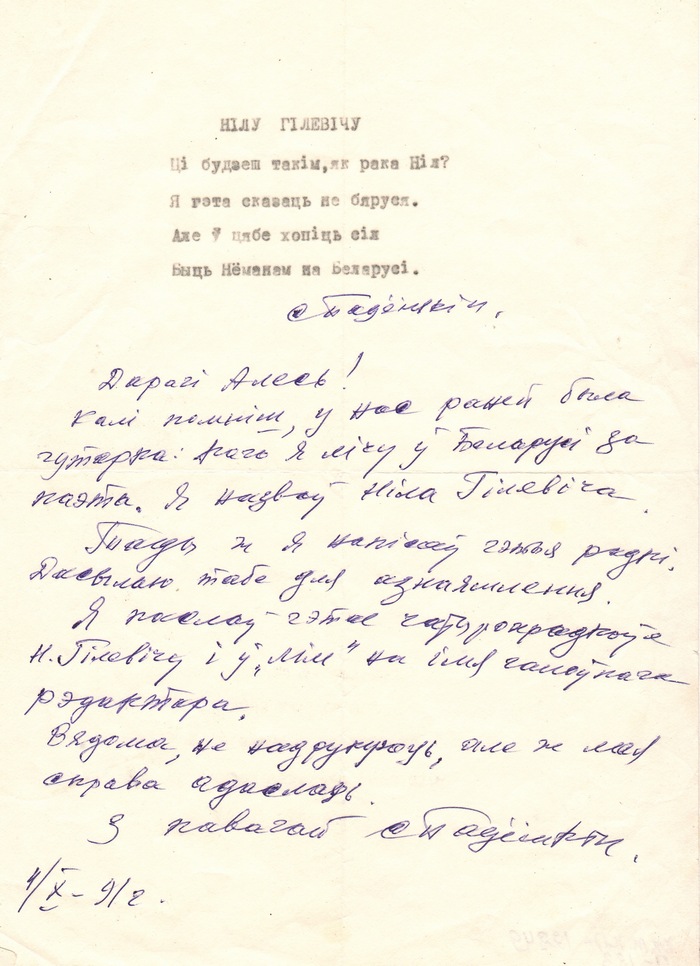 НІЛУ ГІЛЕВІЧУ
Ці будзеш такім, як рака Ніл?
Я гэта сказаць не бяруся.
Але ў цябе хопіць сіл
Быць Нёманам на Беларусі.
Дарагі Алесь!
Калі помніш, у нас раней была
гутарка: каго я лічу ў Беларусі за
паэта. Я назваў Ніла Гілевіча.
Тады ж я напісаў гэтыя радкі.
Дасылаю табе для азнаямлення.
Я паслаў гэтае чатырохрадкоўе
Н. Гілевічу і ў „ЛіМ" на імя галоўнага
рэдактара.
Вядома, не надрукуюць, але ж мая
справа адаслаць.
З павагай
4/X - 91 г.